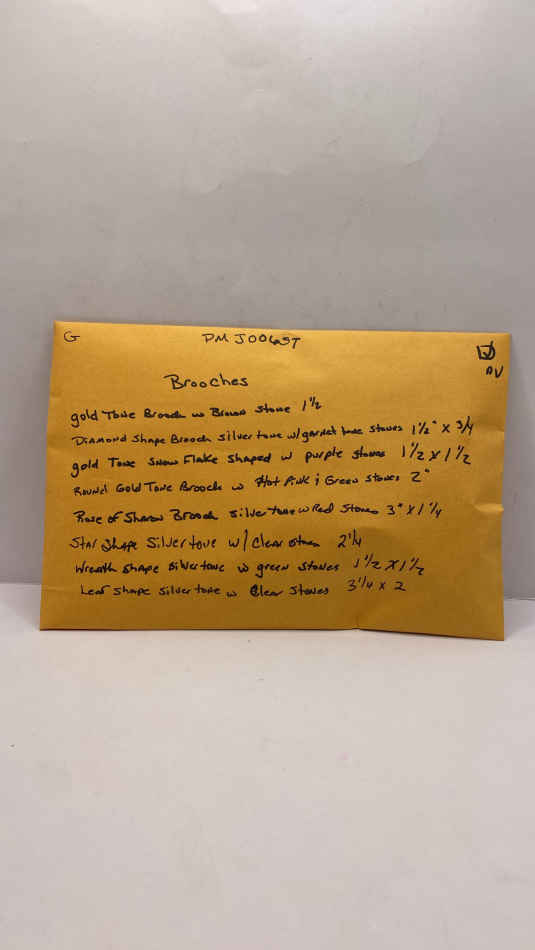 G
PM J006ST
AV
Brooches
gold Tone Brooch w Brown Stone 1 1/2
Diamond Shape Brooch silver tone w/garnet tone stones 1 1/2" x 3/4
gold Tone Snow Flake Shaped w purple stones 1 1/2 x 1 1/2
Round Gold Tone Brooch w Hot Pink & Green stones 2"
Rose of Sharon Brooch silver tone w Red Stones 3" x 1 1/4
Star Shape Silver tone w/ Clear stones 2 1/4
Wreath shape silver tone w green stones 1 1/2 x 1 1/2
Leaf shape silver tone w Clear Stones 3 1/4 x 2